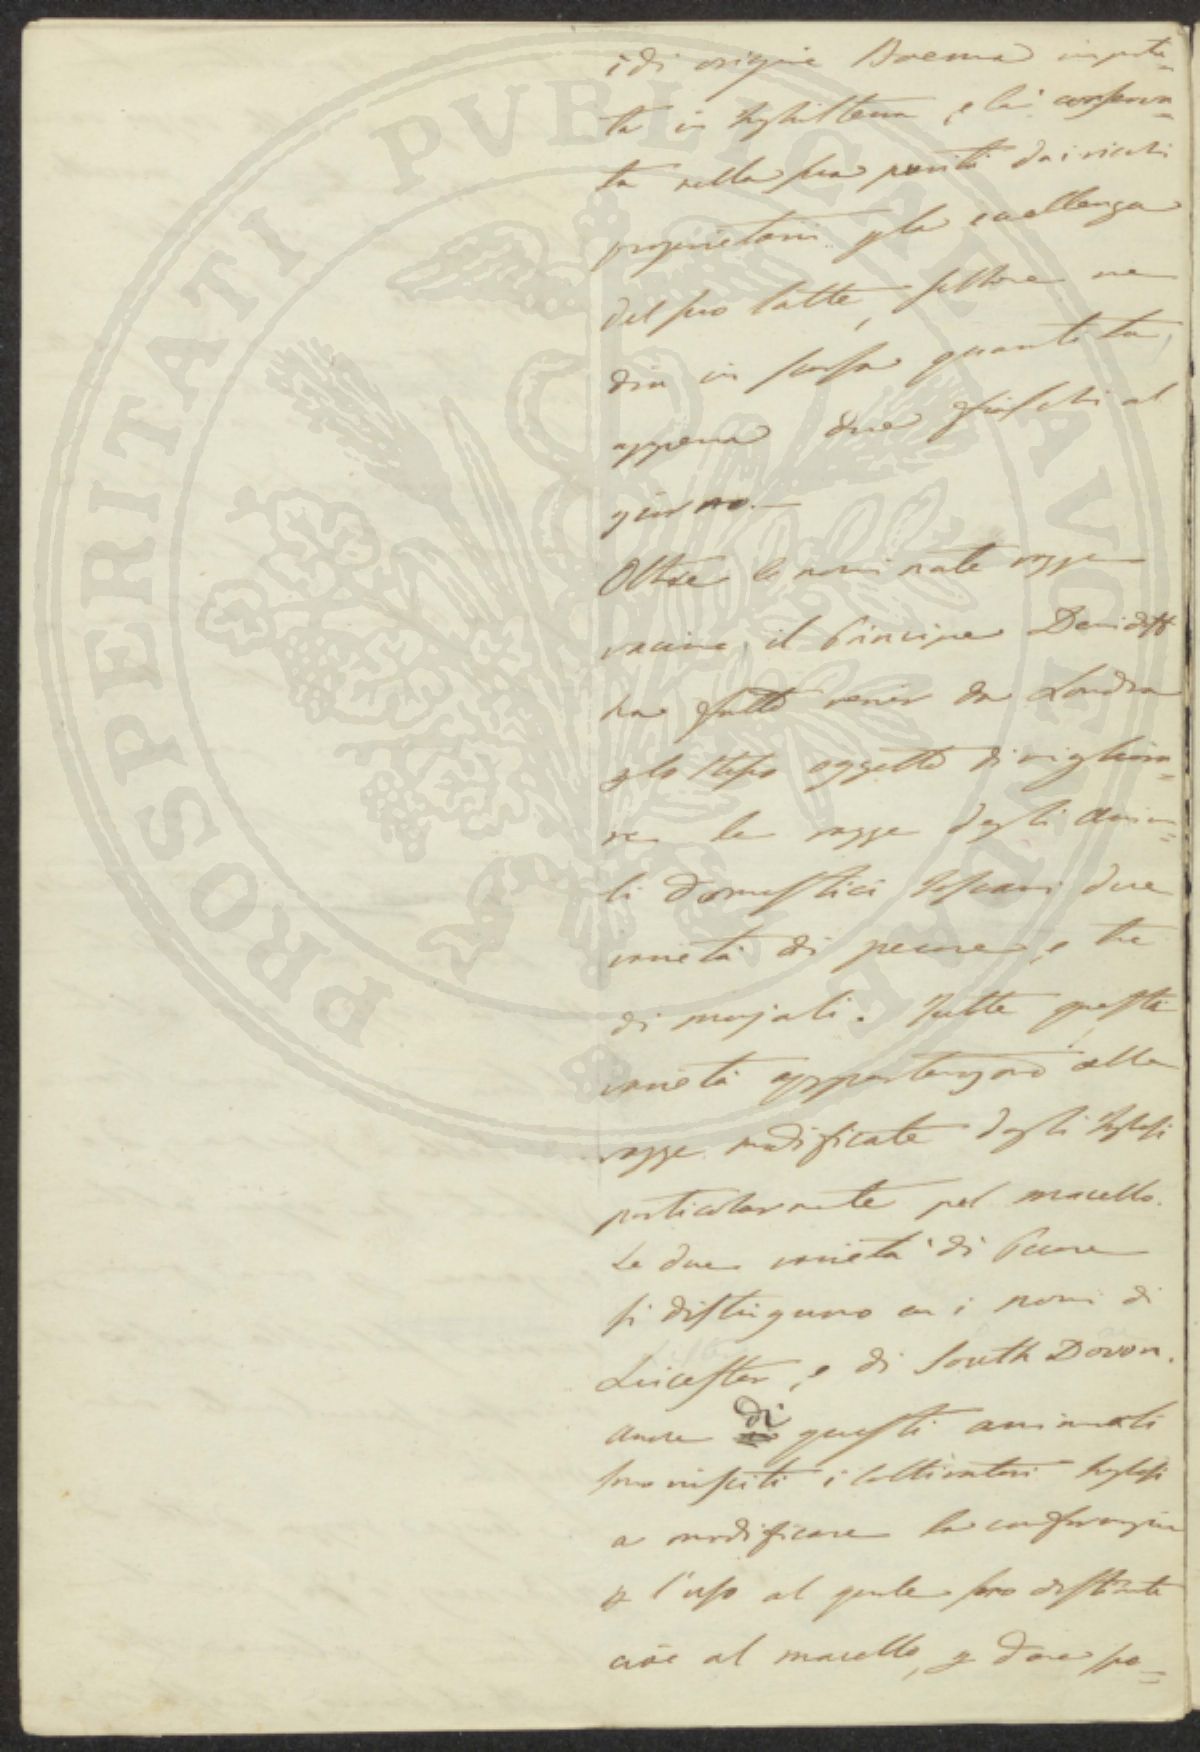 è di origine Boema importa=
ta in Inghilterra, e lì conserva=
ta nella sua purità dai ricchi
proprietari p la eccellenza
del suo latte, sebbene ne
dia in scarsa quantità,
appena due fiaschi al
giorno.—
Oltre le nominate razze
vaccine, il Principe Demidoff
ha fatto venir da Londra
p lo stesso oggetto di migliora=
re le razze degli anima=
li domestici toscani due
varietà di pecore, e tre
di majali. Tutte queste
varietà appartengono alle
razze modificate dagli Inglesi
particolarmente pel macello.
Le due varietà di Pecore
si distinguono con i nomi di
Leicester, e di South Dovon.
Anche di questi animali
sono riusciti i cultivatori Inglesi
a modificare la conformazione
p l'uso al quale sono destinati
cioè al macello, p dare po=
PROSPERITATI PVBLICAE AVGENDAE